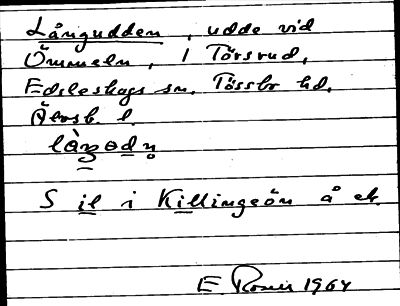 Långudden, udde vid
Ömmeln, i Törsrud,
Edsleskogs sn. Tössbo hd.
Älvsb. l.
S il i Killingeön å ek.
E. 1964